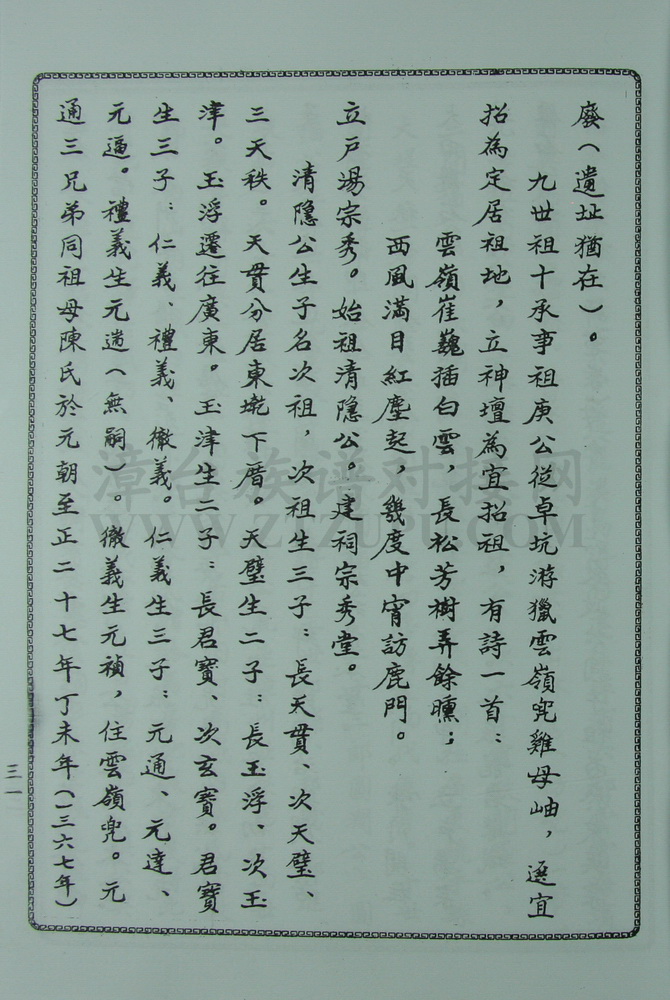 廢（遺址猶在）。
九世祖十承事祖庚公從卓坑游獵雲嶺兜雞母岫，選宜
招為定居祖地，立神壇為宜招祖，有詩一首：
雲嶺崔巍插白雲，長松芳樹弄餘曛；
西風滿目紅塵起，幾度中宵訪鹿門。
立戶湯宗秀。始祖清隱公。建祠宗秀堂。
清隱公生子名次祖，次祖生三子：長天貫、次天璧、
三天秩。天貫分居東墘下厝。天璧生二子：長玉浮、次玉
津。玉浮遷往廣東。玉津生二子：長君寶、次玄寶。君寶
生三子：仁義、禮義、徽義。仁義生三子：元通、元達、
元逼。禮義生元遄（無嗣）。徽義生元禎，住雲嶺兜。元
通三兄弟同祖母陳氏於元朝至正二十七年丁未年（一三六七年）
三一
漳台族谱对接网
WWW.ZTZUPU.COM